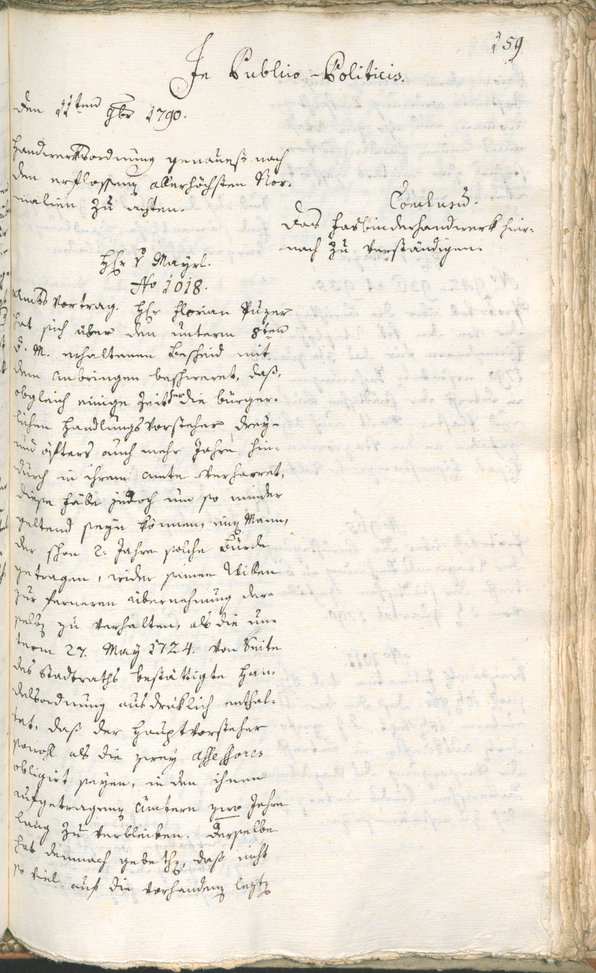 159
In Publico-Politicis.
Den 11ten 9br 1790.
Handwerksordnung genauest nach
den erflossenen allerhöchsten Nor-
malien zu achten.
Conclusum.
Das Fasbinderhandwerk hier-
nach zu verständigen.
Hr v Mayrl.
No 1018.
Amts Vortrag. Hr Florian Puzer
hat sich über den unterm 8ten
d. M. erhaltenen Bescheid mit
dem Anbringen beschweret, daß,
obgleich einige Zeit her die bürger-
lichen Handlungsvorsteher drey-
und öfters auch mehr Jahre hin-
durch in ihrem Amte verharret,
diese Fälle jedoch um so minder
geltend seyn können, einen Mann,
der schon 2. Jahre solche Bürde
getragen, wider seinen Willen
zur ferneren Übernehmung der-
selben zu verhalten, als die un-
term 27. May 1724. von Seite
des Stadtraths bestättigte Han-
delsordnung ausdrüklich enthal-
tet, daß der Hauptvorsteher
sowohl als die zwey Assessores
obligirt seyen, in den ihnen
aufgetragenen Ämtern zwo Jahre
lang zu verbleiben. Derselbe
hat demnach gebethen, daß nicht
so viel auf die vorhandenen letzten